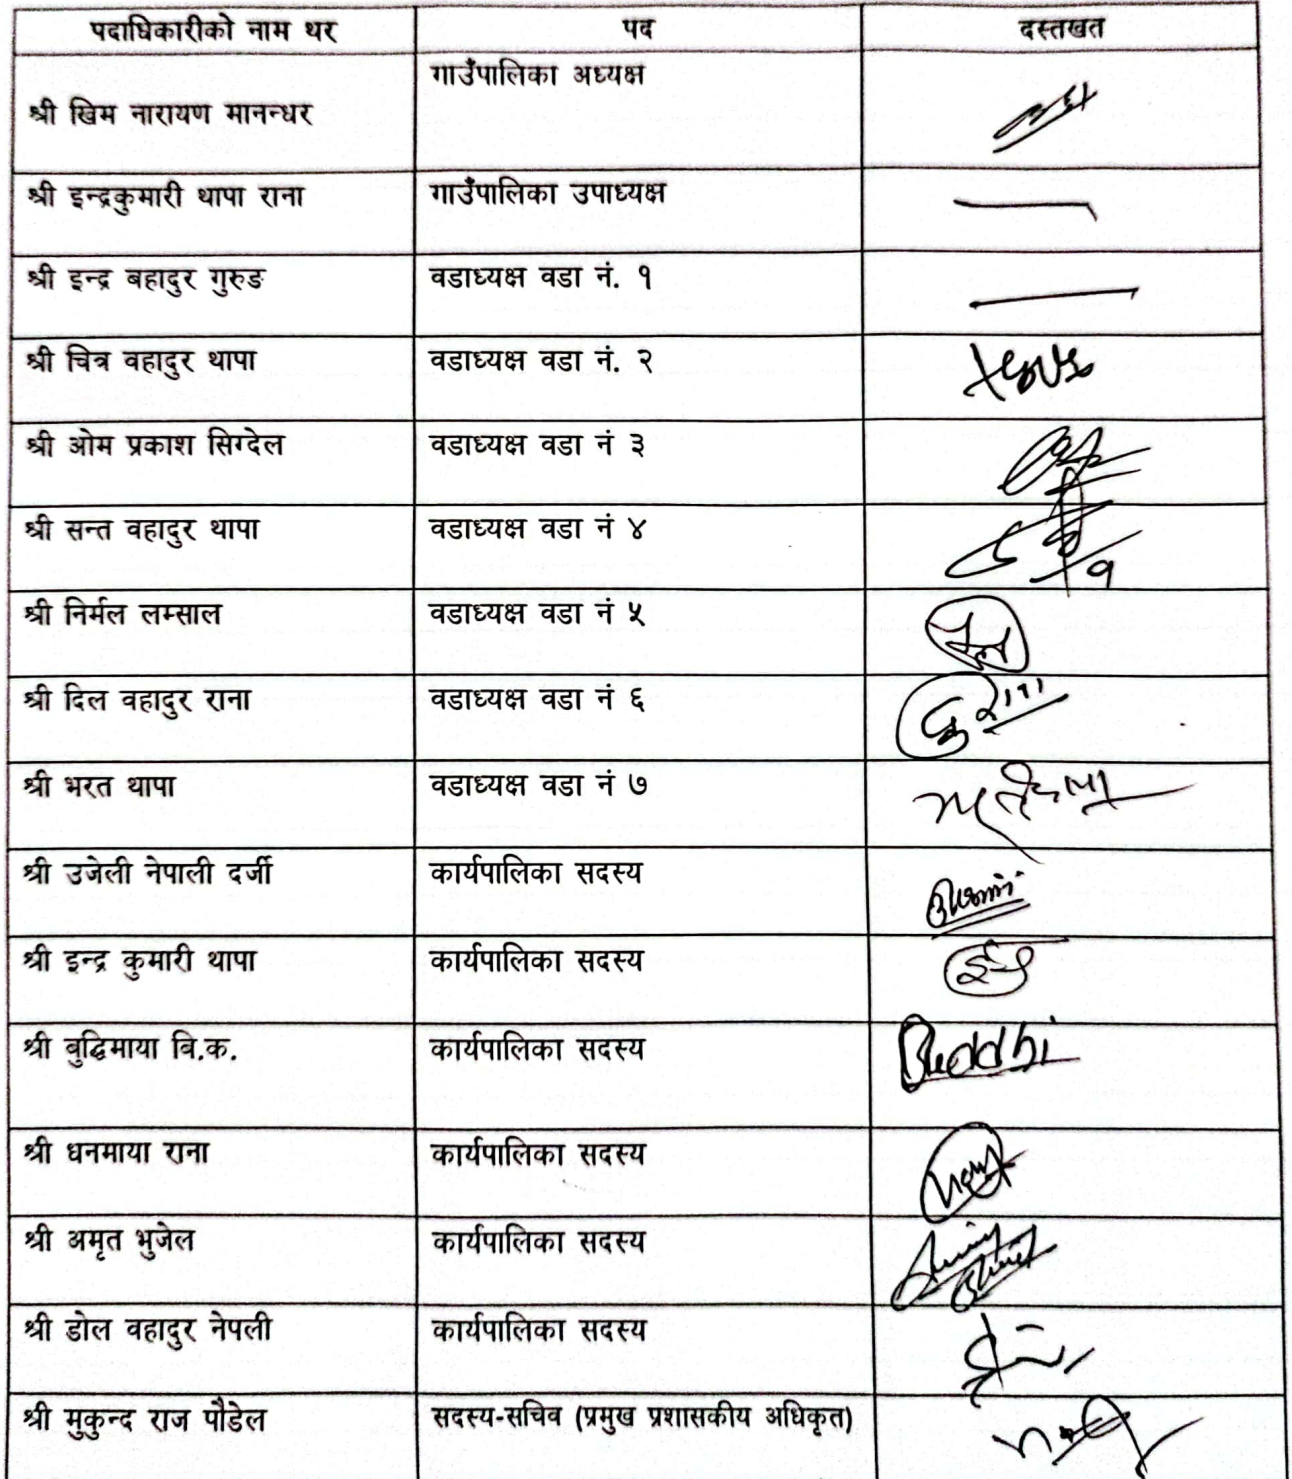 पदाधिकारीको नाम थर पद दस्तखत
श्री खिम नारायण मानन्धर गाउँपालिका अध्यक्ष
श्री इन्द्रकुमारी थापा राना गाउँपालिका उपाध्यक्ष
श्री इन्द्र बहादुर गुरुङ वडाध्यक्ष वडा नं. १
श्री चित्र वहादुर थापा वडाध्यक्ष वडा नं. २
श्री ओम प्रकाश सिग्देल वडाध्यक्ष वडा नं ३
श्री सन्त वहादुर थापा वडाध्यक्ष वडा नं ४
श्री निर्मल लम्साल वडाध्यक्ष वडा नं ५
श्री दिल वहादुर राना वडाध्यक्ष वडा नं ६
श्री भरत थापा वडाध्यक्ष वडा नं ७
श्री उजेली नेपाली दर्जी कार्यपालिका सदस्य
श्री इन्द्र कुमारी थापा कार्यपालिका सदस्य
श्री बुद्धिमाया वि.क. कार्यपालिका सदस्य Buddhi
श्री धनमाया राना कार्यपालिका सदस्य
श्री अमृत भुजेल कार्यपालिका सदस्य
श्री डोल वहादुर नेपली कार्यपालिका सदस्य
श्री मुकुन्द राज पौडेल सदस्य-सचिव (प्रमुख प्रशासकीय अधिकृत)